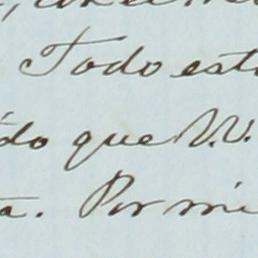 Todo est
do que V.V.
a. Por mi